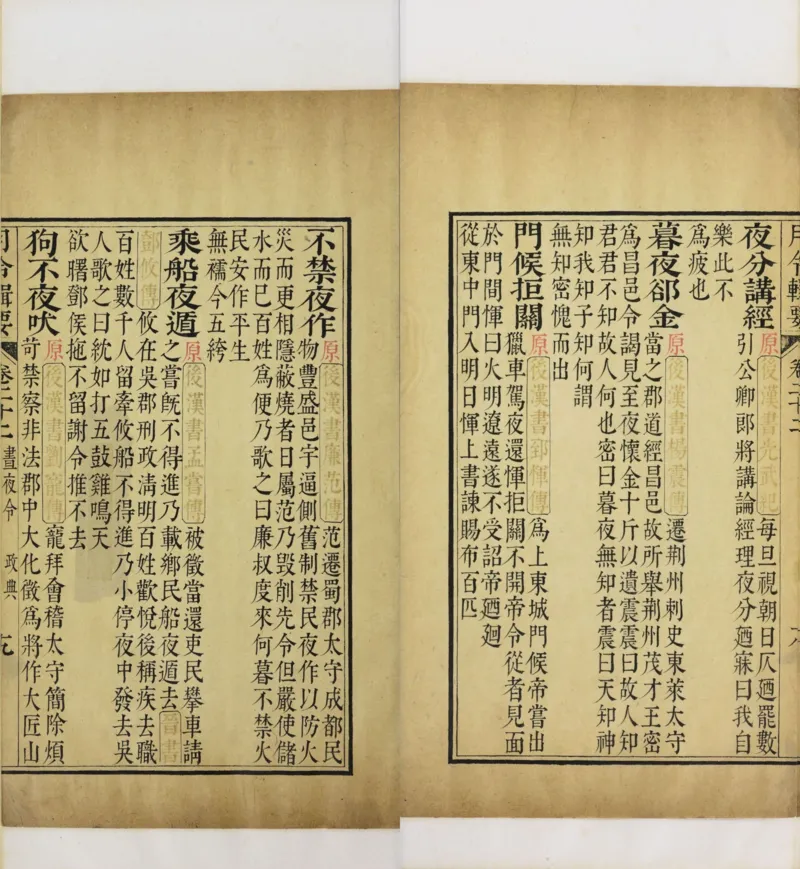 月令輯要 卷二十二
夜分講經 原 後漢書光武紀 每旦視朝日仄廼罷數
引公卿郎將講論經理夜分廼寐曰我自
樂此不
為疲也
暮夜郤金 原 後漢書楊震傳 遷荆州刺史東萊太守
當之郡道經昌邑故所舉荆州茂才王密
為昌邑令謁見至夜懷金十斤以遺震震曰故人知
君君不知故人何也密曰暮夜無知者震曰天知神
知我知子知何謂
無知密愧而出
門候拒關 原 後漢書郅惲傳 為上東城門候帝嘗出
獵車駕夜還惲拒關不開帝令從者見面
於門間惲曰火明遼遠遂不受詔帝廼廻
從東中門入明日惲上書諫賜布百匹
不禁夜作 原 後漢書廉范傳 范遷蜀郡太守成都民
物豐盛邑宇逼側舊制禁民夜作以防火
災而更相隱蔽燒者日屬范乃毀削先令但嚴使儲
水而已百姓為便乃歌之曰廉叔度來何暮不禁火
民安作平生
無襦今五袴
乘船夜遁 原 後漢書孟嘗傳 被徵當還吏民攀車請
之嘗旣不得進乃載鄉民船夜遁去 晉書
鄧攸傳 攸在吳郡刑政清明百姓歡悅後稱疾去職
百姓數千人留牽攸船不得進乃小停夜中發去吳
人歌之曰紞如打五鼓雞鳴天
欲曙鄧侯拖不留謝令推不去
狗不夜吠 原 後漢書劉寵傳 寵拜會稽太守簡除煩
苛禁察非法郡中大化徵為將作大匠山
月令輯要 卷二十二 晝夜令 政典